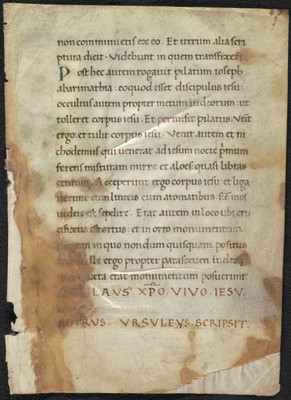 non comminuetis ex eo. Et iterum alia scri
ptura dicit. Videbunt in quem transfixer̄
Post hec autem rogavit pilatum ioseph
abarimathia. eo quod esset discipulus iesu
occultus autem propter metum iudeorum. ut
tolleret corpus iesu. Et permisit pilatus. Venit
ergo. et tulit corpus iesu. Venit autem et ni
chodemus qui venerat ad iesum nocte primum
ferens mixturam mirre et aloes. quasi libras
centum. Acceperunt ergo corpus iesu. et liga
verunt eum linteis cum aromatibus. sic mos
iudeis est sepelire. Erat autem in loco ubi cru
cifixus est ortus. et in orto monumentum
in quo nondum quisquam positus
ergo propter parasceven iudeo
iuxta erat monumentum posuerunt
LAUS XPO. VIVO. IESU.
PETRUS. URSULEUS. SCRIPSIT.